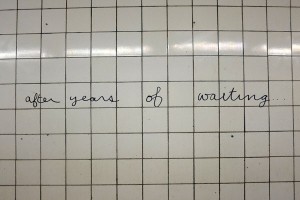 after years of waiting...